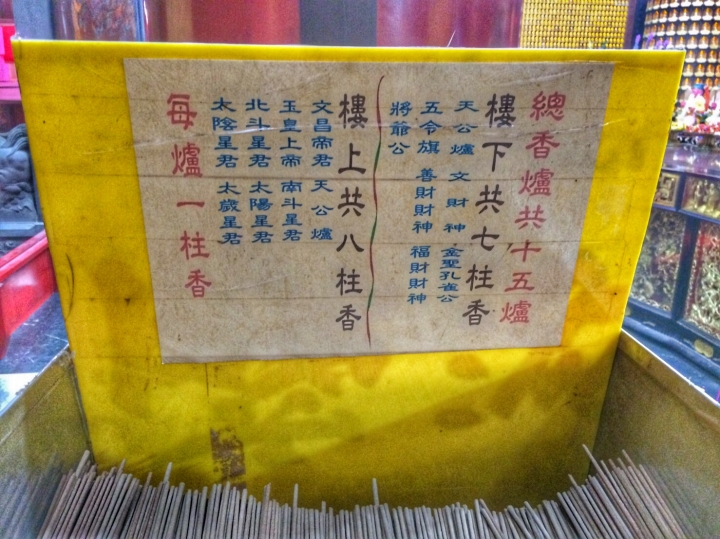 總香爐共十五爐
樓下共七柱香
天公爐 文財神 金聖孔雀公
五令旗 善財財神 福財財神
將爺公
樓上共八柱香
文昌帝君 天公爐
玉皇上帝 南斗星君
北斗星君 太陽星君
太陰星君 太歲星君
每爐一柱香